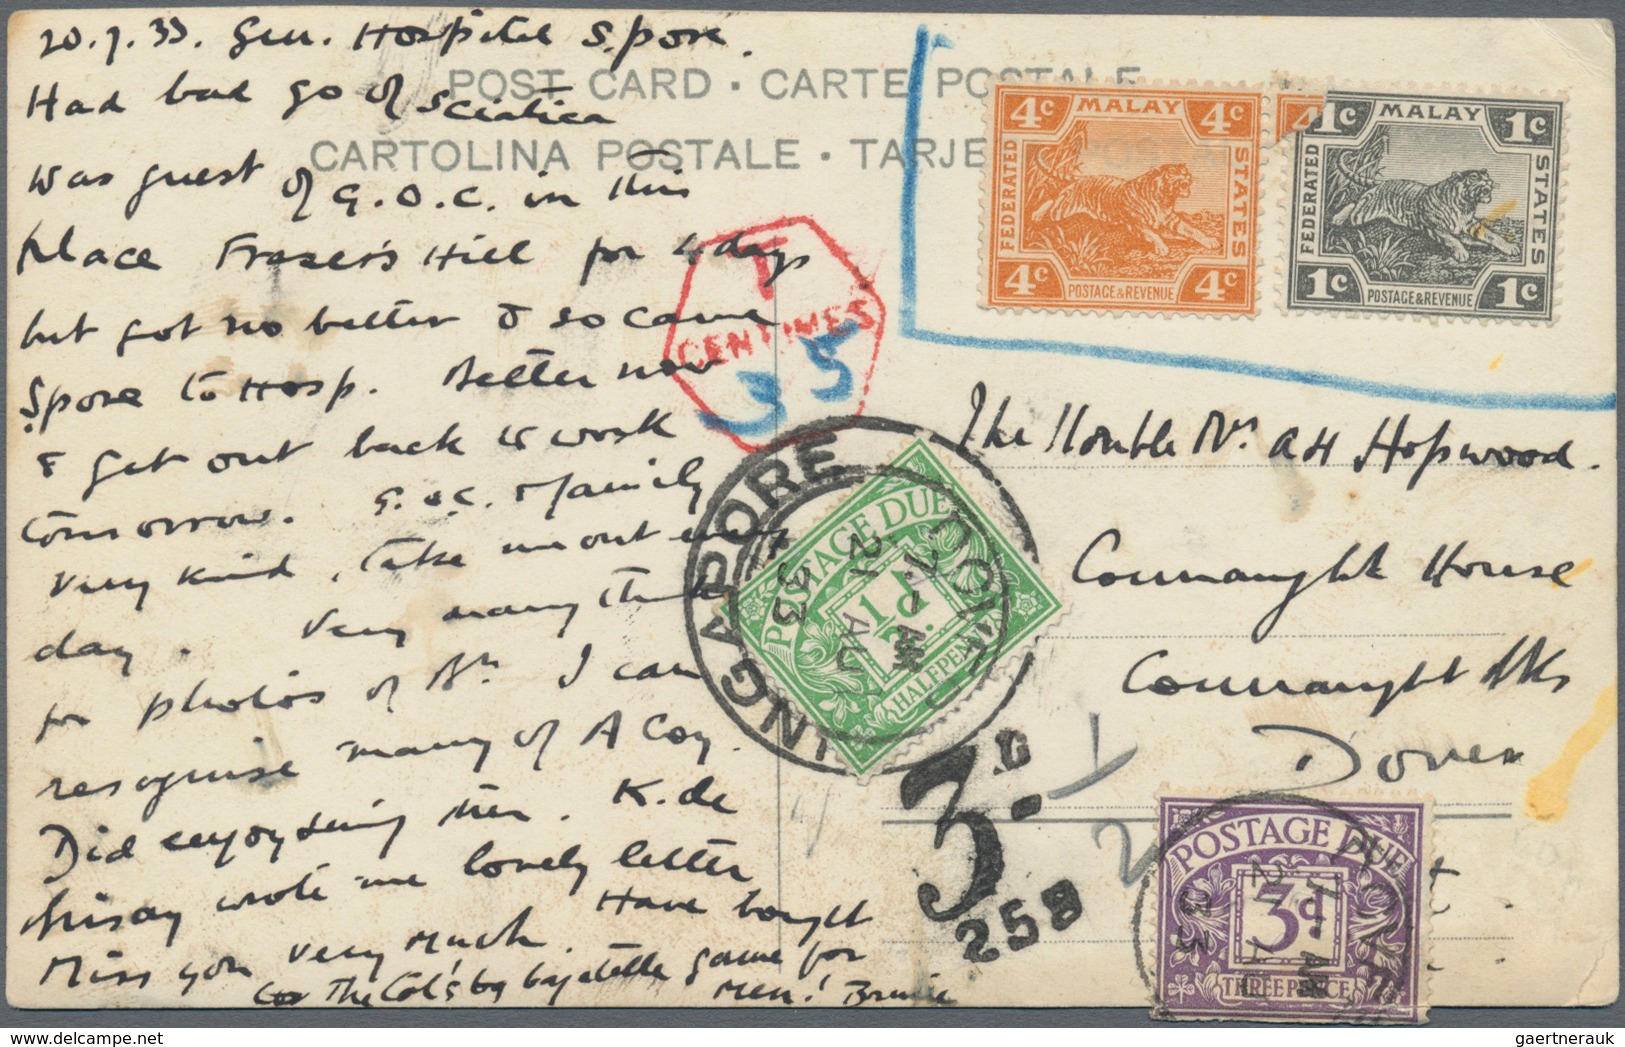 20.7.33. Gen. Hospital S.pore.
Had bad go of Sciatica
was guest of G.O.C. in this
place Fraser's Hill for 4 days
but got no better & so came
S.pore to Hosp. Better now
& get out back to work
tomorrow. G.O.C. & family
very kind, take me out every
day. Very many thanks
for photos of Mn. I can
recognise many of A Coy.
Did enjoy seeing them. K. de
wrote me lovely letter
Miss you very much. Have bought
The Col's bagatelle game for
Men! Brunie
POST CARD · CARTE POSTALE
CARTOLINA POSTALE · TARJE
MALAY
4c 4c
FEDERATED STATES
POSTAGE & REVENUE
4c 4c
4
MALAY
1c 1c
FEDERATED STATES
POSTAGE & REVENUE
1c 1c
T
CENTIMES
35
The Honble Mrs A H Hopwood.
Connaught House
Connaught Bks
Dover
SINGAPORE
POSTAGE DUE
½d.
HALFPENNY
DOVER
7- AM
21 AU
33
3D.
258
1
2
POSTAGE DUE
3d
THREE PENCE
DOVER
7- AM
33
gaertnerauk